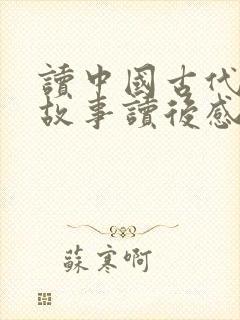 讀中國古代
故事讀後感
蘇寒啊